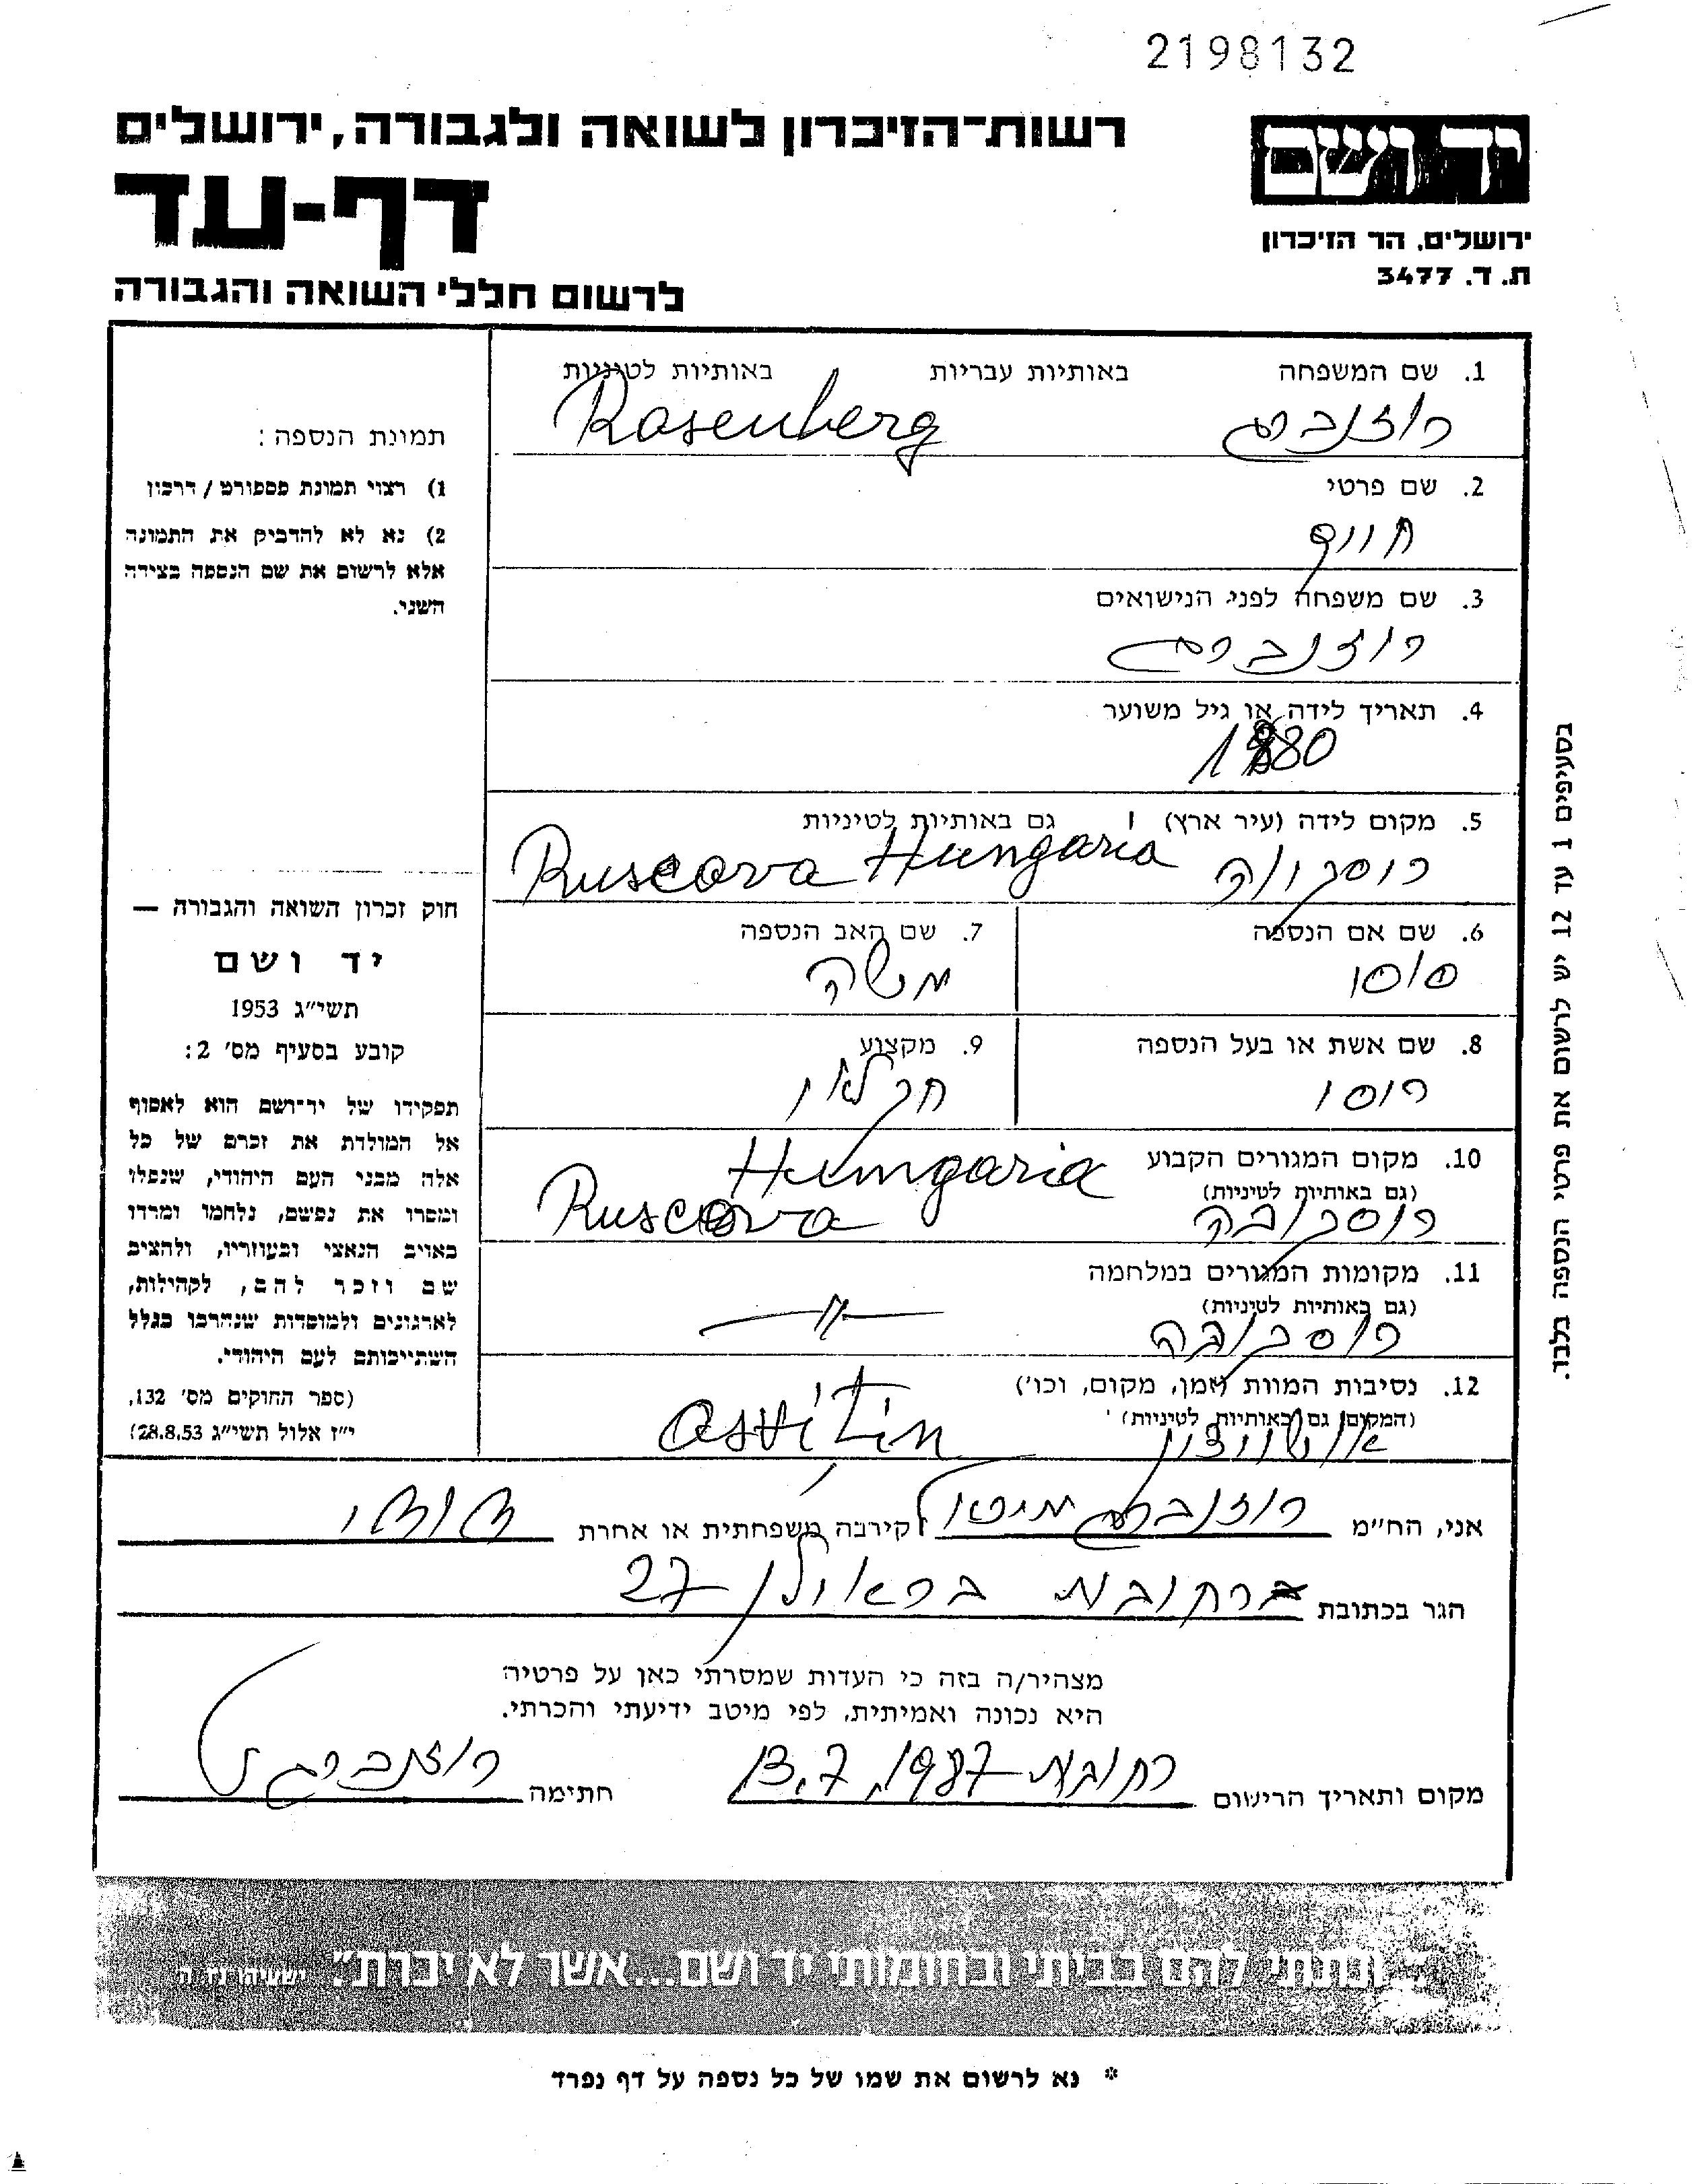 2198132
יד ושם
רשות־הזיכרון לשואה ולגבורה, ירושלים
דף-עד
ירושלים, הר הזיכרון
ת. ד. 3477
לרשום חללי השואה והגבורה
1. שם המשפחה באותיות עבריות באותיות לטיניות
רוזנברג Rosenberg
2. שם פרטי
חיים
3. שם משפחה לפני הנישואים
רוזנברג
4. תאריך לידה או גיל משוער
1880
5. מקום לידה (עיר ארץ) גם באותיות לטיניות
רוסקווה Ruscova Hungaria
6. שם אם הנספה 7. שם האב הנספה
סוסי משה
8. שם אשת או בעל הנספה 9. מקצוע
רוסי חקלאי
10. מקום המגורים הקבוע
(גם באותיות לטיניות)
רוסקובה Ruscova Hungaria
11. מקומות המגורים במלחמה
(גם באותיות לטיניות)
רוסקובה —"—
12. נסיבות המוות (זמן, מקום, וכו')
(המקום גם באותיות לטיניות)
תמונת הנספה:
1) רצוי תמונת פספורט / דרכון
2) נא לא להדביק את התמונה
אלא לרשום את שם הנספה בצידה
השני.
חוק זכרון השואה והגבורה —
יד ושם
תשי״ג 1953
קובע בסעיף מס' 2:
תפקידו של יד־ושם הוא לאסוף
אל המולדת את זכרם של כל
אלה מבני העם היהודי, שנפלו
ומסרו את נפשם, נלחמו ומרדו
באויב הנאצי ובעוזריו, ולהציב
שם וזכר להם, לקהילות,
לארגונים ולמוסדות שנחרבו בגלל
השתייכותם לעם היהודי.
(ספר החוקים מס' 132,
י״ז אלול תשי״ג 28.8.53)
בסעיפים 1 עד 12 יש לרשום את פרטי הנספה בלבד.
אני, הח״מ רוזנברג קירבה משפחתית או אחרת דודי
הגר בכתובת ברחובות 27
מצהיר/ה בזה כי העדות שמסרתי כאן על פרטיה
היא נכונה ואמיתית, לפי מיטב ידיעתי והכרתי.
מקום ותאריך הרישום רחובות 13.7.1987 חתימה רוזנברג
ונתתי להם בביתי ובחומותי יד ושם...אשר לא יכרת". ישעיהו נו ה
* נא לרשום את שמו של כל נספה על דף נפרד